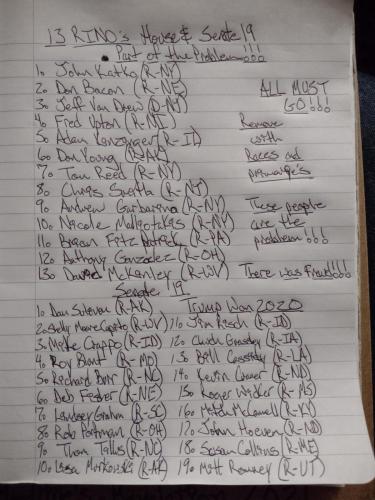 13 RINO's House & Senate 19
Part of the Problem!!!
1. John Katko (R-NY)
2. Don Bacon (R-NE)
3. Jeff Van Drew (R-NJ)
4. Fred Upton (R-MI)
5. Adam Kinzinger (R-IL)
6. Don Young (R-AK)
7. Tom Reed (R-NY)
8. Chris Smith (R-NJ)
9. Andrew Garbarino (R-NY)
10. Nicole Malliotakis (R-NY)
11. Brian Fitzpatrick (R-PA)
12. Anthony Gonzalez (R-OH)
13. David McKinley (R-WV)
ALL MUST
GO!!!
Remove
with
Races and
primary's
These people
are the
problem!!!
There was Fraud!!!
Senate 19
Trump Won 2020
1. Dan Sullivan (R-AK)
2. Shelly Moore Capito (R-WV)
3. Mike Crappo (R-ID)
4. Roy Blunt (R-MO)
5. Richard Burr (R-NC)
6. Deb Fisher (R-NE)
7. Lindsey Graham (R-SC)
8. Rob Portman (R-OH)
9. Thom Tillis (R-NC)
10. Lisa Murkowski (R-AK)
11. Jim Risch (R-ID)
12. Chuck Grassley (R-IA)
13. Bill Cassidy (R-LA)
14. Kevin Cramer (R-ND)
15. Roger Wicker (R-MS)
16. Mitch McConnell (R-KY)
17. John Hoeven (R-ND)
18. Susan Collins (R-ME)
19. Mitt Romney (R-UT)